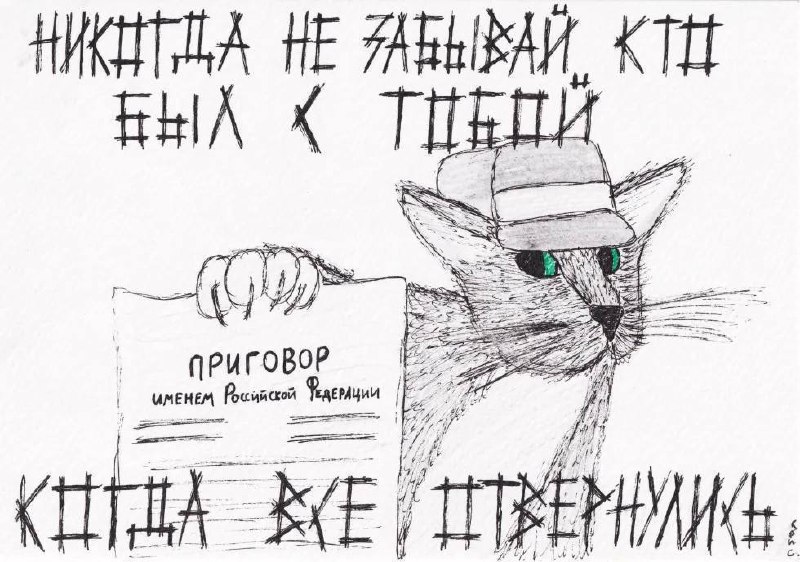 НИКОГДА НЕ ЗАБЫВАЙ КТО
БЫЛ С ТОБОЙ
ПРИГОВОР
ИМЕНЕМ РОССИЙСКОЙ ФЕДЕРАЦИИ
КОГДА ВСЕ ОТВЕРНУЛИСЬ